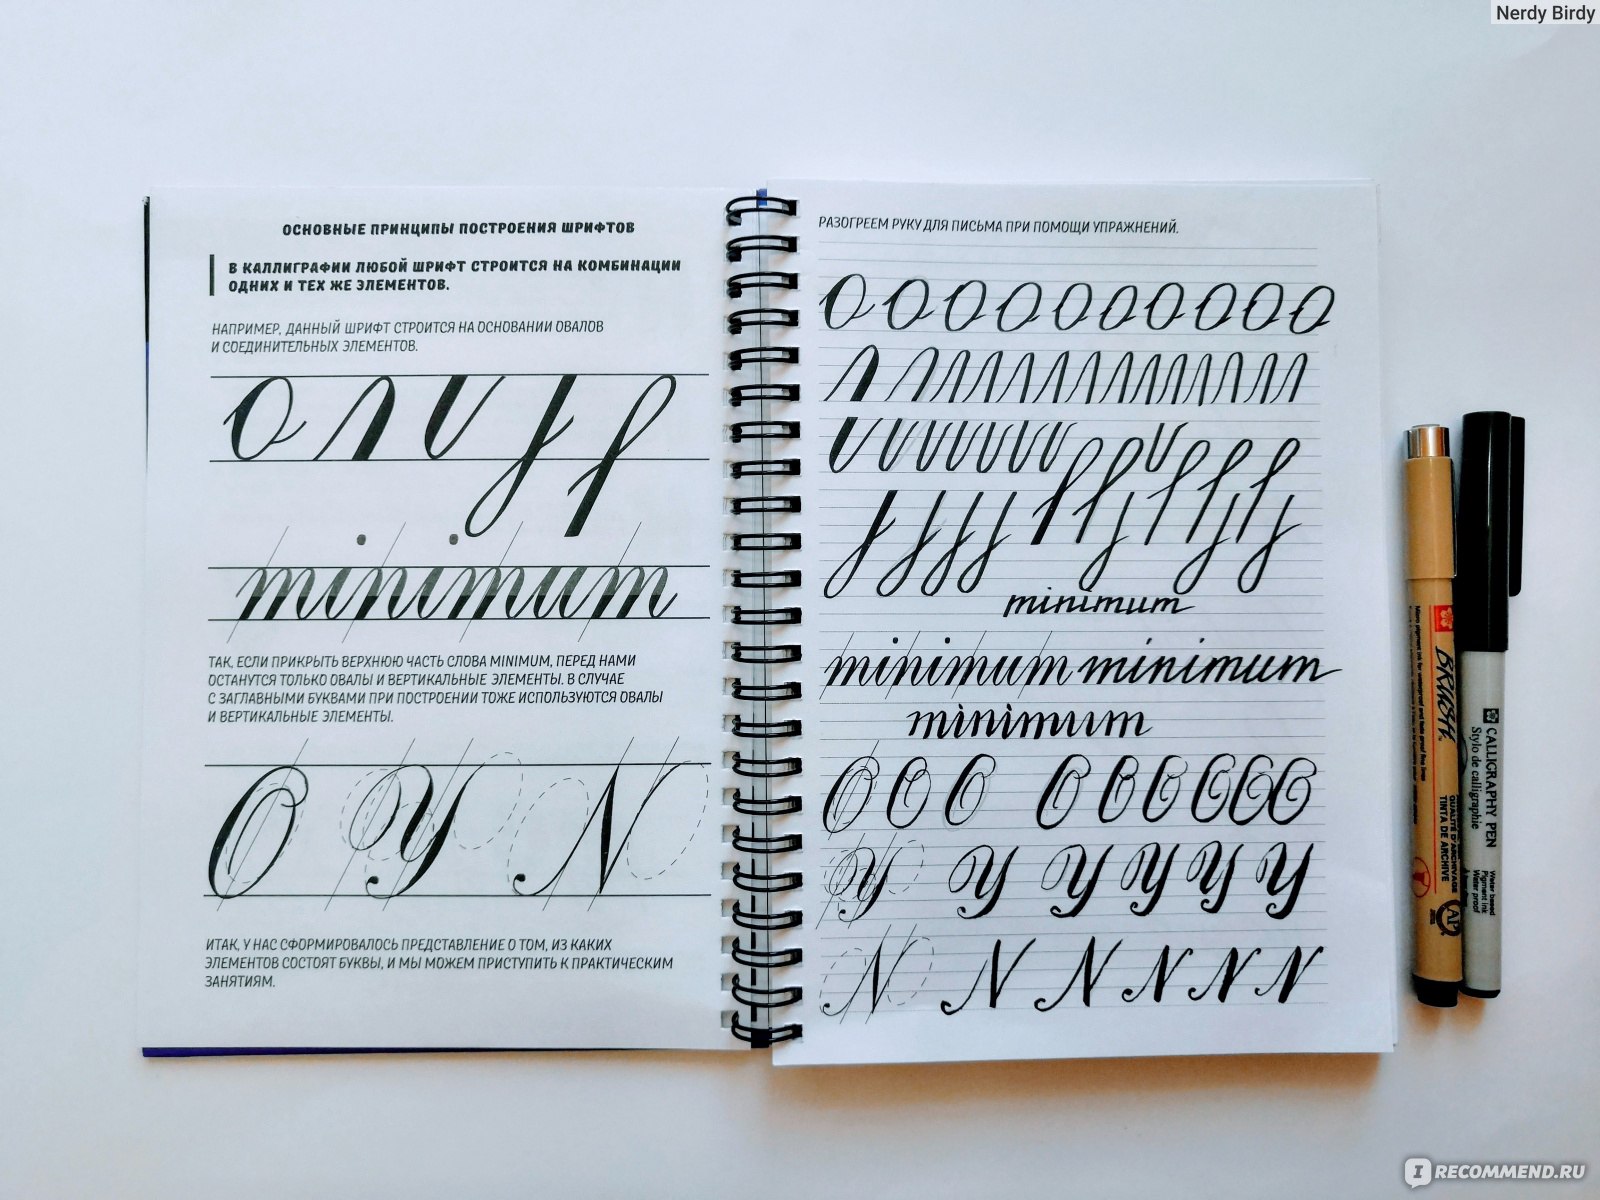 Nerdy Birdy
ОСНОВНЫЕ ПРИНЦИПЫ ПОСТРОЕНИЯ ШРИФТОВ
В КАЛЛИГРАФИИ ЛЮБОЙ ШРИФТ СТРОИТСЯ НА КОМБИНАЦИИ
ОДНИХ И ТЕХ ЖЕ ЭЛЕМЕНТОВ.
НАПРИМЕР, ДАННЫЙ ШРИФТ СТРОИТСЯ НА ОСНОВАНИИ ОВАЛОВ
И СОЕДИНИТЕЛЬНЫХ ЭЛЕМЕНТОВ.
minimum
ТАК, ЕСЛИ ПРИКРЫТЬ ВЕРХНЮЮ ЧАСТЬ СЛОВА MINIMUM, ПЕРЕД НАМИ
ОСТАНУТСЯ ТОЛЬКО ОВАЛЫ И ВЕРТИКАЛЬНЫЕ ЭЛЕМЕНТЫ. В СЛУЧАЕ
С ЗАГЛАВНЫМИ БУКВАМИ ПРИ ПОСТРОЕНИИ ТОЖЕ ИСПОЛЬЗУЮТСЯ ОВАЛЫ
И ВЕРТИКАЛЬНЫЕ ЭЛЕМЕНТЫ.
O Y N
ИТАК, У НАС СФОРМИРОВАЛОСЬ ПРЕДСТАВЛЕНИЕ О ТОМ, ИЗ КАКИХ
ЭЛЕМЕНТОВ СОСТОЯТ БУКВЫ, И МЫ МОЖЕМ ПРИСТУПИТЬ К ПРАКТИЧЕСКИМ
ЗАНЯТИЯМ.
РАЗОГРЕЕМ РУКУ ДЛЯ ПИСЬМА ПРИ ПОМОЩИ УПРАЖНЕНИЙ.
o o o o o o o o o o
minimum
minimum minimum
minimum
O O O O O O O O O
Y Y Y Y Y Y
N N N N N N
BRUSH
QUALITÉ D'ARCHIVAGE
TINTA DE ARCHIVE
CALLIGRAPHY PEN
Stylo de calligraphie
Water based
Pigment ink
Water proof
IRECOMMEND.RU